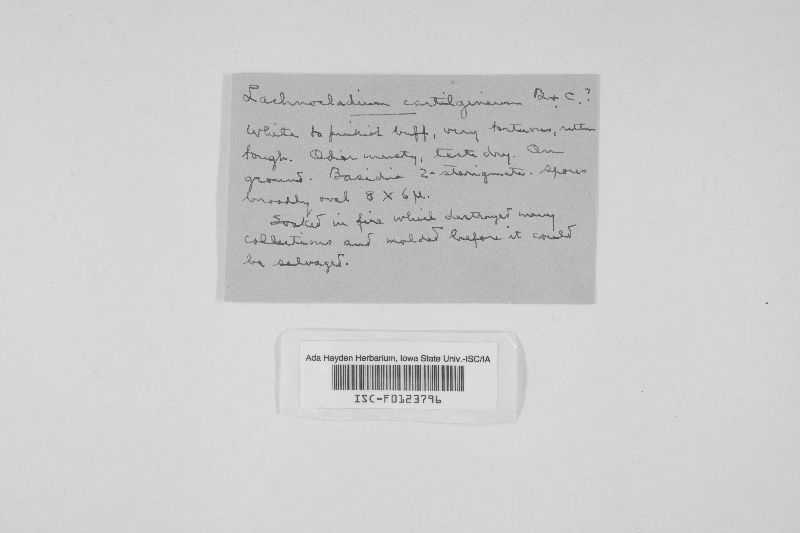 Lachnocladium cartilgineum B. & C.?
White to pinkish buff, very tortuous, rather
tough. Odor musty, taste dry. On
ground. Basidia 2-sterigmate. Spores
broadly oval 8 X 6 µ.
Soaked in fire which destroyed many
collections and molded before it could
be salvaged.
Ada Hayden Herbarium, Iowa State Univ.-ISC/IA
ISC-F0123796